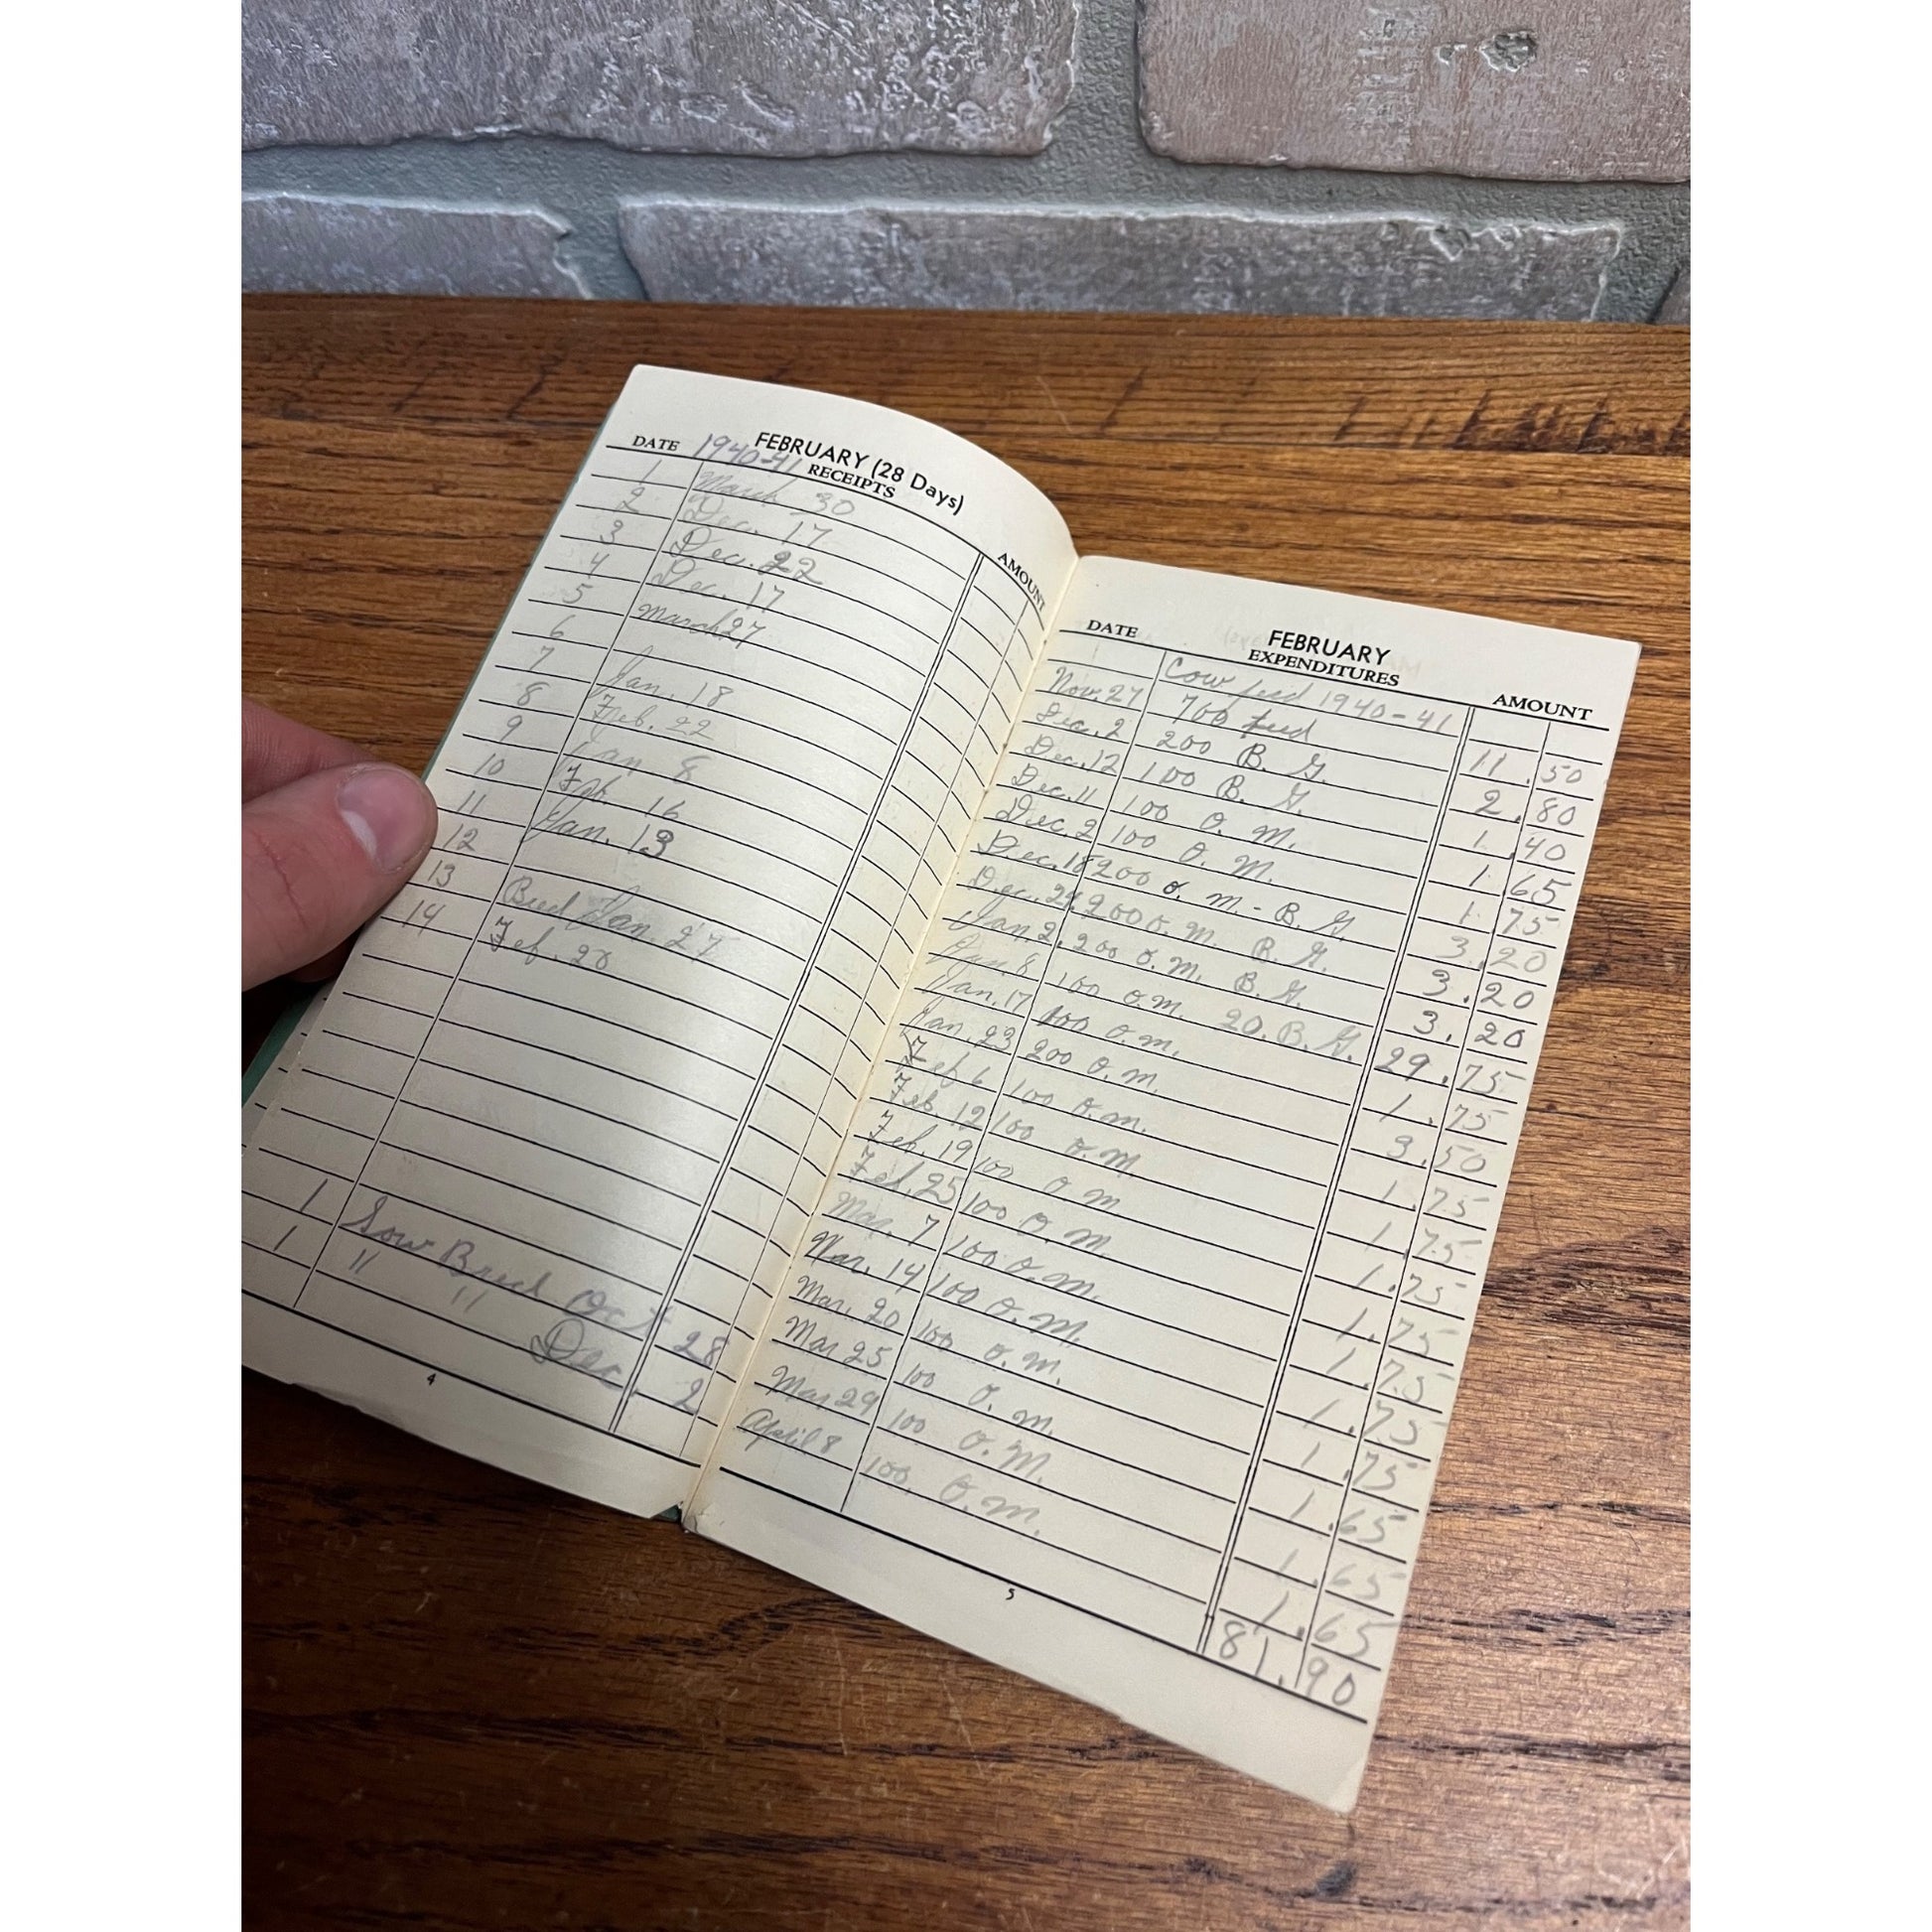 FEBRUARY (28 Days)
DATE 1940-41 RECEIPTS AMOUNT
1 March 30
2 Dec. 17
3 Dec. 22
4 Dec. 17
5 March 27
6
7 Jan. 18
8 Feb. 22
9 Jan 8
10 Feb. 16
11 Jan. 13
12
13 Bred Jan 27
14 Feb. 20
1 Sow Bred Oct 28
1 " " Dec. 2
4
FEBRUARY
DATE EXPENDITURES AMOUNT
Cow feed 1940-41
Nov. 27 700 feed 11.50
Dec. 2 200 B. G. 2.80
Dec. 12 100 B. G. 1.40
Dec. 11 100 O. M. 1.65
Dec. 2 100 O. M. 1.75
Dec. 18 200 O. M. - B. G. 3.20
Dec. 24 200 O. M. B. G. 3.20
Jan. 2. 200 O. M. B. G. 3.20
Jan. 8 100 O. M. 20. B. G. 29.75
Jan. 17 100 O. M. 1.75
Jan. 23 200 O. M. 3.50
Feb 6 100 O. M. 1.75
Feb. 12 100 O. M. 1.75
Feb. 19 100 O M 1.75
Feb. 25 100 O. M. 1.75
Mar. 7 100 O. M. 1.75
Mar. 14 100 O. M. 1.75
Mar. 20 100 O. M. 1.75
Mar 25 100 O. M. 1.65
Mar 29 100 O. M. 1.65
April 8 100 O. M. 1.65
81.90
5